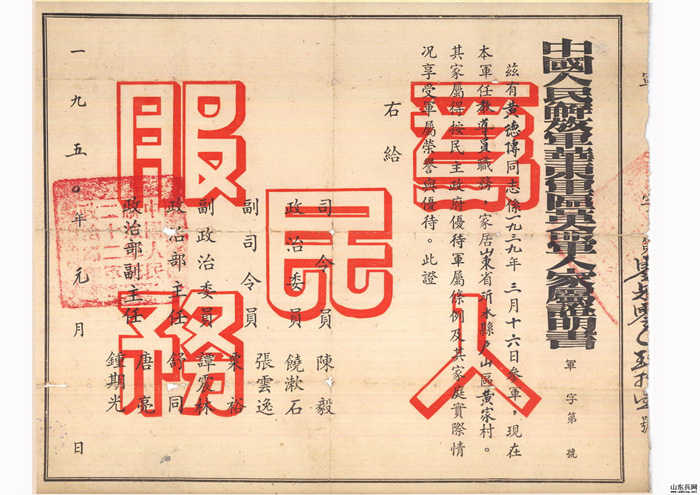 中國人民解放軍華東軍區革命軍人家屬證明書
軍字第 號
茲有黃德同志係一九三九年三月十六日參軍，現在
本軍任教導員職務，家居山東省沂水縣山區黃家村。
其家屬得按民主政府優待軍屬條例及其家庭實際情
況享受軍屬榮譽與優待。此證
右給
為人民服務
司令員 陳毅
政治委員 饒漱石
副司令員 張雲逸
粟裕
副政治委員 譚震林
政治部主任 舒同
政治部副主任 唐亮
鍾期光
一九五〇年元月 日
山东兵网